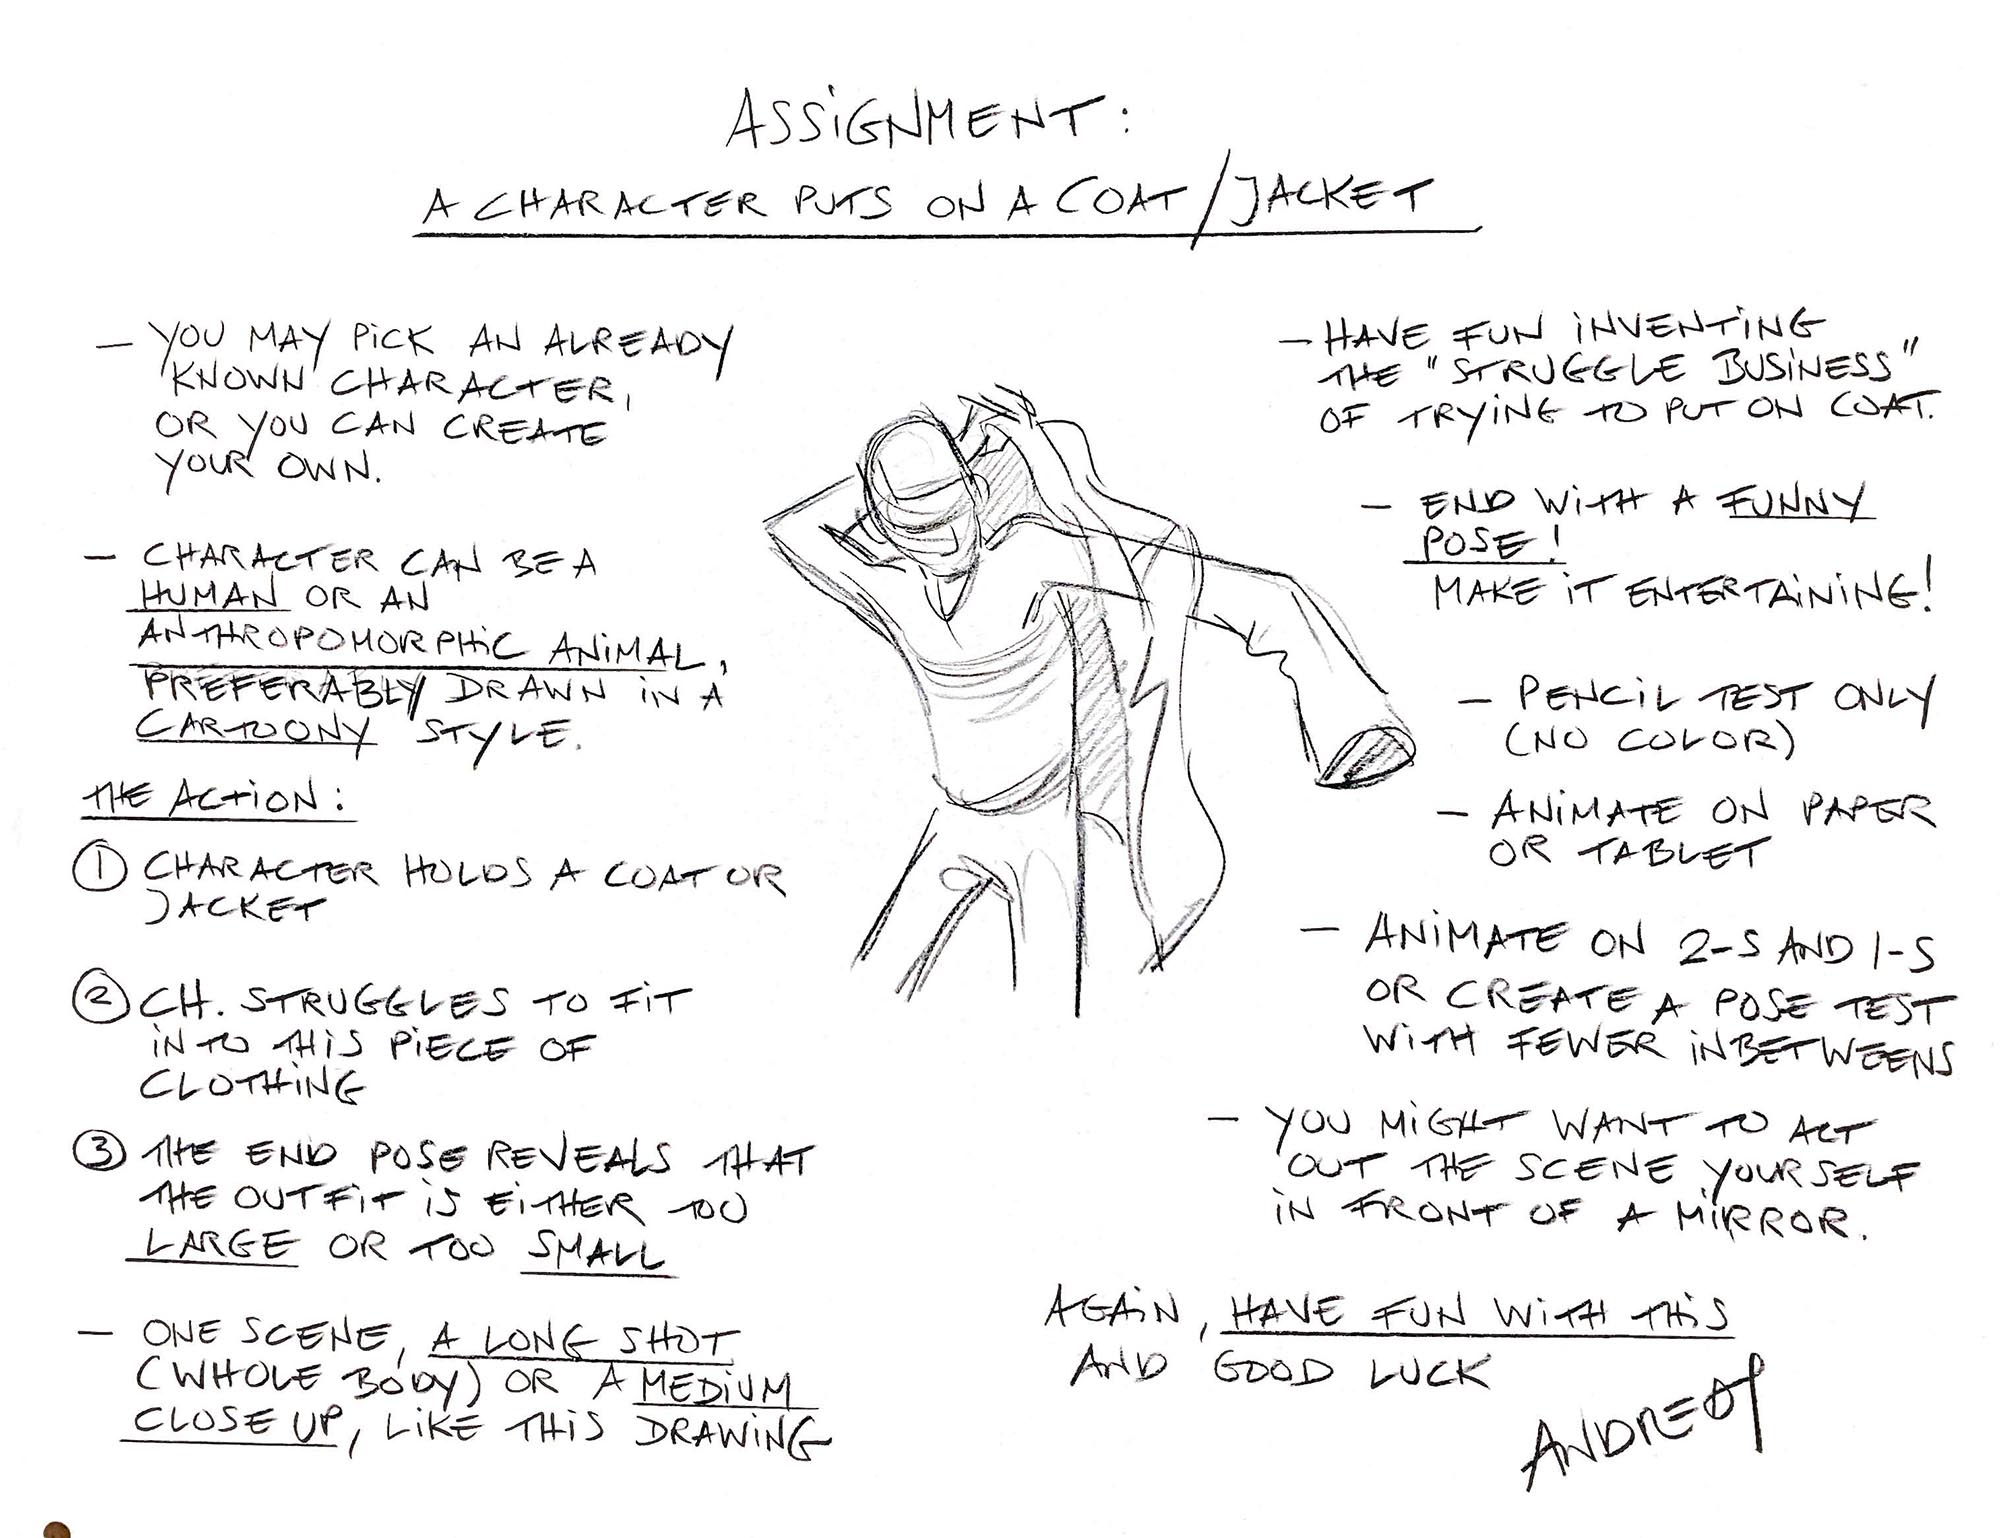 ASSiGNMENT:
A CHARACTER PUTS ON A COAT/JACKET
— YOU MAY PiCK AN ALREADY
KNOWN CHARACTER,
OR YOU CAN CREATE
YOUR OWN.
— CHARACTER CAN BE A
HUMAN OR AN
ANTHROPOMORPHiC ANiMAL,
PREFERABLY DRAWN iN A
CARTOONY STYLE.
THE ACTiON:
① CHARACTER HOLDS A COAT OR
JACKET
② CH. STRUGGLES TO FiT
iNTO THiS PiECE OF
CLOTHiNG
③ THE END POSE REVEALS THAT
THE OUTFiT iS EiTHER TOO
LARGE OR TOO SMALL
— ONE SCENE, A LONG SHOT
(WHOLE BODY) OR A MEDiUM
CLOSE UP, LiKE THiS DRAWiNG
— HAVE FUN iNVENTiNG
THE "STRUGGLE BUSiNESS"
OF TRYiNG TO PUT ON COAT.
— END WiTH A FUNNY
POSE!
MAKE iT ENTERTAiNiNG!
— PENCiL TEST ONLY
(NO COLOR)
— ANiMATE ON PAPER
OR TABLET
— ANiMATE ON 2-S AND 1-S
OR CREATE A POSE TEST
WiTH FEWER iNBETWEENS
— YOU MiGHT WANT TO ACT
OUT THE SCENE YOURSELF
iN FRONT OF A MiRROR.
AGAiN, HAVE FUN WiTH THiS
AND GOOD LUCK
ANDREAS